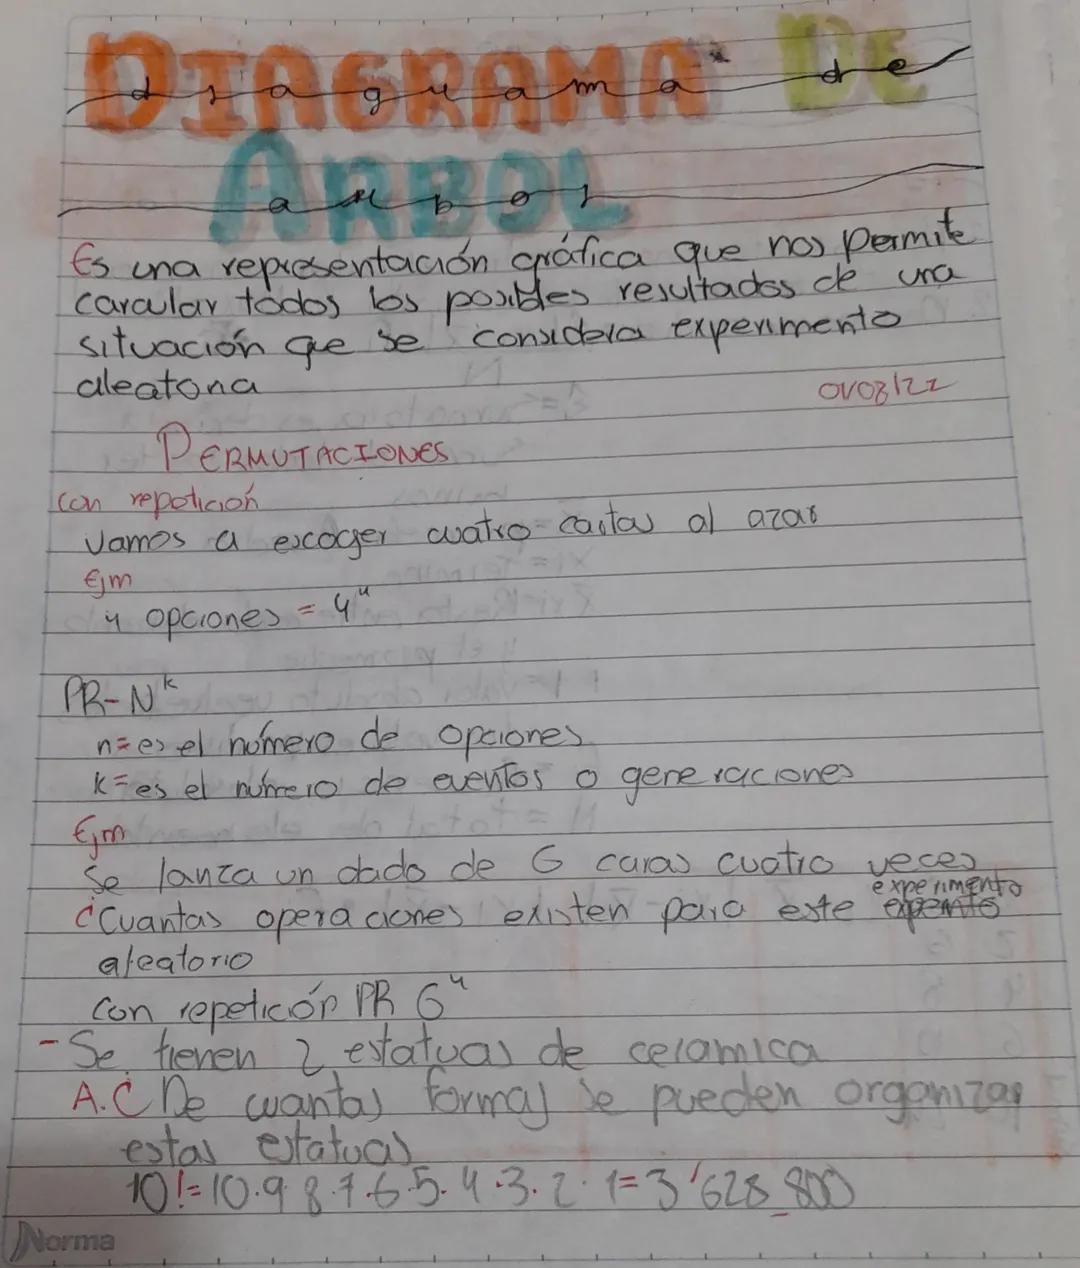 DIAGRAMA DE
diagrama de
ARBOL
arbol
Es una representación gráfica que nos permite
carcular todos los posibles resultados de una
situación que se considera experimento
aleatona
01/08/22
PERMUTACIONES
con repotición
Vamos a escoger cuatro cartas al azar
Ejm
4 opciones = 4⁴
PR-Nᵏ
n= es el número de opciones
k= es el número de eventos o generaciones
Ejm
Se lanza un dado de 6 caras cuatro veces
experimento
¿Cuantas operaciones existen para este
aleatorio
Con repetición PR 6⁴
- Se tienen 2 estatuas de ceramica
A.¿De cuantas formas se pueden organizar
estas estatuas
10!=10.9 8.7.6.5.4.3.2.1=3'628 800
Norma